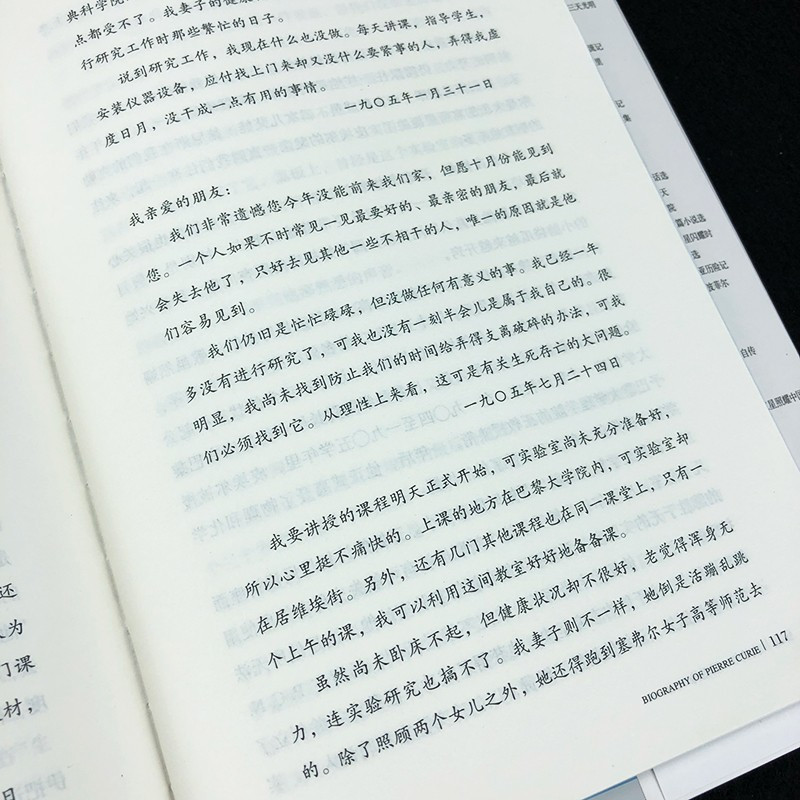 典科学院
点都受不了。我妻子的健康
行研究工作时那些繁忙的日子。
说到研究工作，我现在什么也没做。每天讲课，指导学生，
安装仪器设备，应付找上门来却又没什么要紧事的人，弄得我虚
度日月，没干成一点有用的事情。
一九〇五年一月三十一日
我亲爱的朋友：
我们非常遗憾您今年没能前来我们家，但愿十月份能见到
您。一个人如果不时常见一见最要好的、最亲密的朋友，最后就
会失去他了，只好去见其他一些不相干的人，唯一的原因就是他
们容易见到。
我们仍旧是忙忙碌碌，但没做任何有意义的事。我已经一年
多没有进行研究了，可我也没有一刻半会儿是属于我自己的。很
明显，我尚未找到防止我们的时间给弄得支离破碎的办法，可我
们必须找到它。从理性上来看，这可是有关生死存亡的大问题。
一九〇五年七月二十四日
我要讲授的课程明天正式开始，可实验室尚未充分准备好，
所以心里挺不痛快的。上课的地方在巴黎大学院内，可实验室却
在居维埃街。另外，还有几门其他课程也在同一课堂上，只有一
个上午的课，我可以利用这间教室好好地备备课。
虽然尚未卧床不起，但健康状况却不很好，老觉得浑身无
力，连实验研究也搞不了。我妻子则不一样，她倒是活蹦乱跳
的。除了照顾两个女儿之外，她还得跑到塞弗尔女子高等师范去
BIOGRAPHY OF PIERRE CURIE | 117
还
为
门课
材，
日
三天光明
记
集
话选
天
院
篇小说选
星闪耀时
选
亚历险记
菲尔
自传
星照耀中国